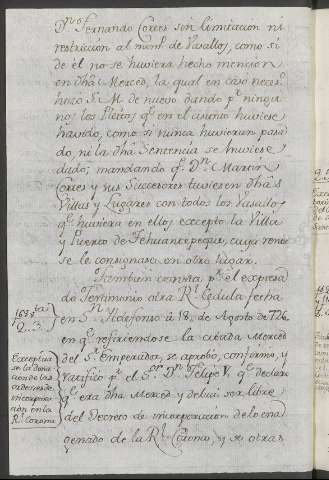 Dn. Fernando Cortes sin limitacion ni
restriccion al num.o de Vasallos, como si
de él no se huviera hecho mencion
en dha Merced, la qual en caso neces.o
hizo S. M. de nuevo dando p.r ningu
nos los Pleitos q.e en el asunto huviese
havido, como si nunca huvieran pasa
do, ni la dha Sentencia se huviese
dado; mandando q.e Dn. Martin
Cortes y sus Successores tuviesen dhas
Villas y Lugares con todos los Vasallos
q.e huviera en ellos excepto la Villa
y Puerto de Tehuantepeque, cuya renta
se le consignase en otro lugar.
Tambien consta p.r el expresa
do Testimonio otra R.l Cedula fecha
en Sn. Ildefonso á 18. de Agosto de 726.
en q.e refiriendose la citada Merced
del S.or Emperador, se aprobó, confirmo, y
ratifico p.r el S.or Dn. Felipe V. q.e declaró
q.e era dha Merced y debia ser libre
del Decreto de incorporacion de lo ena
genado de la R.l Corona, y se otras
Exceptua
se la dona
cion de las
ordenes de
incorpora
cion en la
R.l Corona